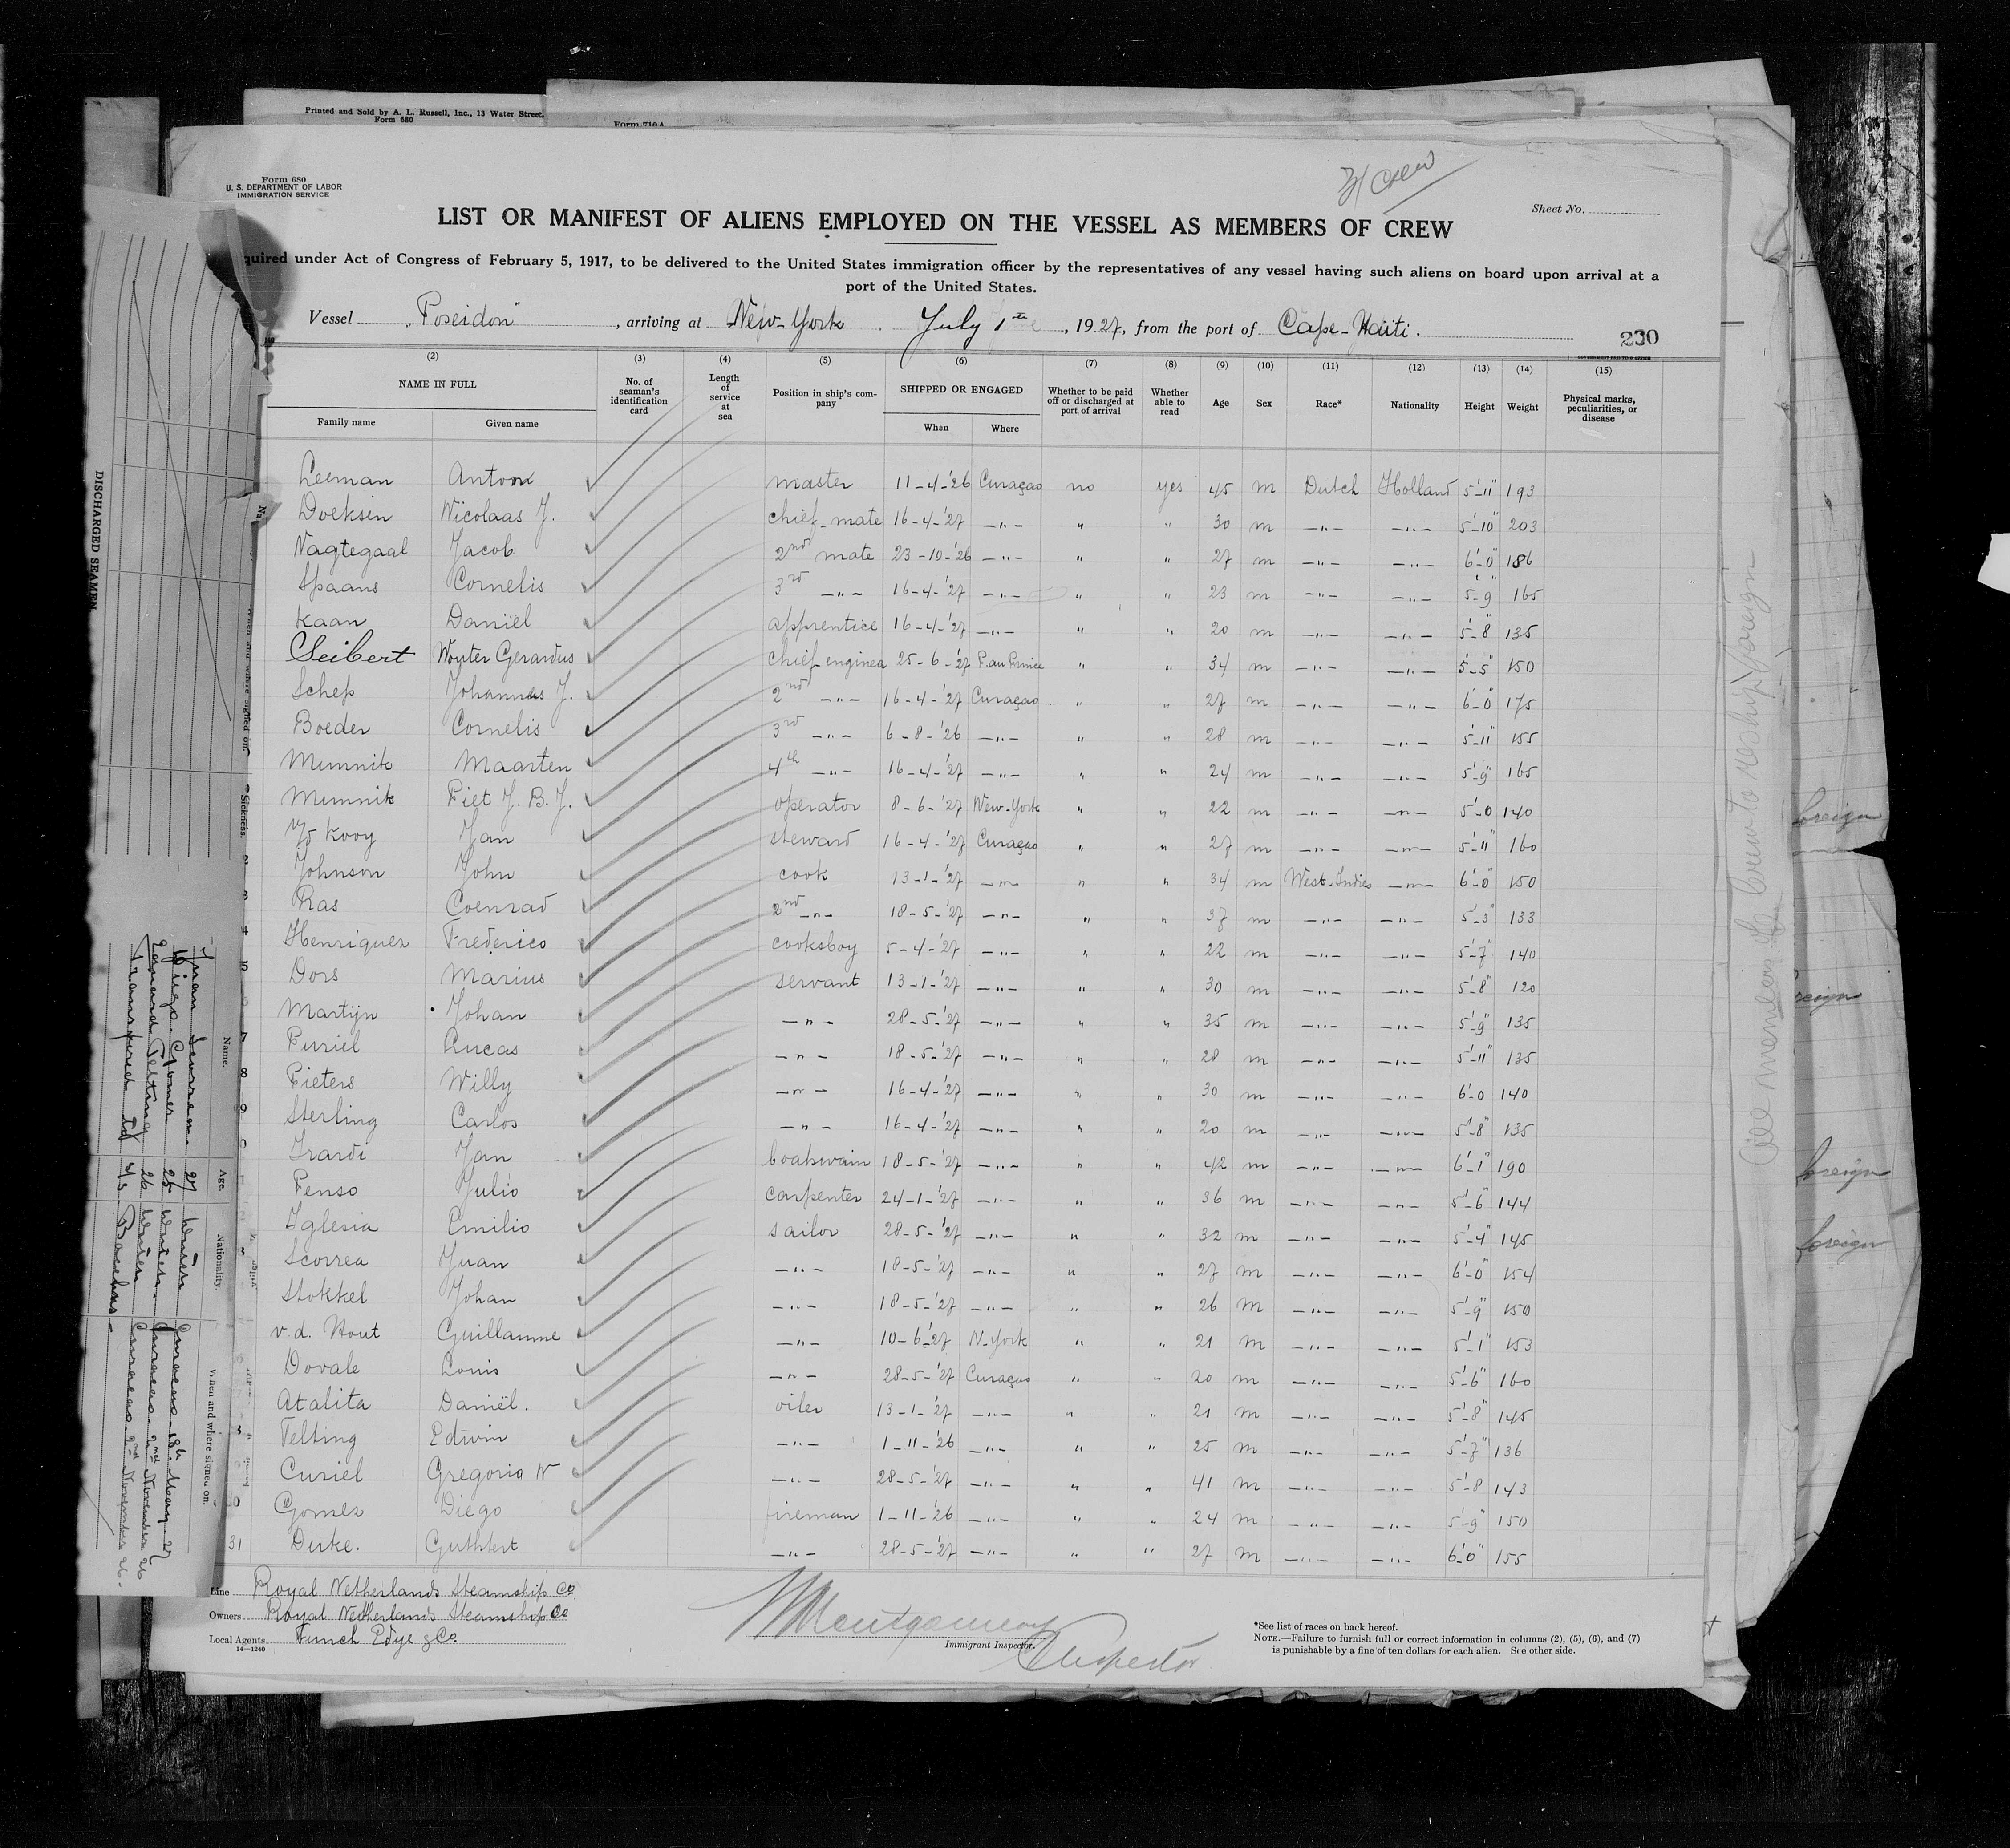 Printed and Sold by A. L. Russell, Inc., 13 Water Street,
Form 680
Form 710A
Form 680
U. S. DEPARTMENT OF LABOR
IMMIGRATION SERVICE
31 Crew
Sheet No.
LIST OR MANIFEST OF ALIENS EMPLOYED ON THE VESSEL AS MEMBERS OF CREW
quired under Act of Congress of February 5, 1917, to be delivered to the United States immigration officer by the representatives of any vessel having such aliens on board upon arrival at a
port of the United States.
Vessel "Poseidon", arriving at New-York July 1st, 1927, from the port of Cape-Haïti.
230
GOVERNMENT PRINTING OFFICE
(2) (3) (4) (5) (6) (7) (8) (9) (10) (11) (12) (13) (14) (15)
NAME IN FULL No. of seaman's identification card Length of service at sea Position in ship's company SHIPPED OR ENGAGED Whether to be paid off or discharged at port of arrival Whether able to read Age Sex Race* Nationality Height Weight Physical marks, peculiarities, or disease
Family name Given name When Where
Leeman Antoon master 11-4-'26 Curaçao no yes 45 m Dutch Holland 5'-11" 193
Doeksen Nicolaas J. chief-mate 16-4-'27 -"- " " 30 m -"- -"- 5'-10" 203
Nagtegaal Jacob 2nd mate 23-10-'26 -"- " " 27 m -"- -"- 6'-0" 186
Spaans Cornelis 3rd -"- 16-4-'27 -"- " " 23 m -"- -"- 5'-9" 165
Kaan Daniël apprentice 16-4-'27 -"- " " 20 m -"- -"- 5'-8" 135
Seibert Wouter Gerardus chief-enginea 25-6-'27 P.au Prince " " 34 m -"- -"- 5'-5" 150
Schep Johannes J. 2nd -"- 16-4-'27 Curaçao " " 27 m -"- -"- 6'-0" 175
Boeder Cornelis 3rd -"- 6-8-'26 -"- " " 28 m -"- -"- 5'-11" 155
Munnik Maarten 4th -"- 16-4-'27 -"- " " 24 m -"- -"- 5'-9" 165
Munnik Piet J. B. J. operator 8-6-'27 New-York " " 22 m -"- -"- 5'-0 140
Kooy Jan steward 16-4-'27 Curaçao " " 27 m -"- -"- 5'-11" 160
Johnson John cook 13-1-'27 -"- " " 34 m West-Indies -"- 6'-0" 150
Ras Coenrad 2nd -"- 18-5-'27 -"- " " 37 m -"- -"- 5'-3" 133
Henriquez Frederico cooksboy 5-4-'27 -"- " " 22 m -"- -"- 5'-7" 140
Dors Marius servant 13-1-'27 -"- " " 30 m -"- -"- 5'-8" 120
Martijn Johan -"- 28-5-'27 -"- " " 35 m -"- -"- 5'-9" 135
Curiel Lucas -"- 18-5-'27 -"- " " 28 m -"- -"- 5'-11" 135
Pieters Willy -"- 16-4-'27 -"- " " 30 m -"- -"- 6'-0 140
Sterling Carlos -"- 16-4-'27 -"- " " 20 m -"- -"- 5'-8" 135
Jan boatswain 18-5-'27 -"- " " 42 m -"- -"- 6'-1" 190
Penso Julio carpenter 24-1-'27 -"- " " 36 m -"- -"- 5'-6" 144
Iglesia Emilio sailor 28-5-'27 -"- " " 32 m -"- -"- 5'-4" 145
Scorrea Juan -"- 18-5-'27 -"- " " 27 m -"- -"- 6'-0" 154
Stokkel Johan -"- 18-5-'27 -"- " " 26 m -"- -"- 5'-9" 150
v.d. Hout Guillaume -"- 10-6-'27 N-York " " 21 m -"- -"- 5'-1" 153
Dovale Louis -"- 28-5-'27 Curaçao " " 20 m -"- -"- 5'-6" 160
Atalita Daniël. oiler 13-1-'27 -"- " " 21 m -"- -"- 5'-8" 145
Telting Edwin -"- 1-11-'26 -"- " " 25 m -"- -"- 5'-7" 136
Curiel Gregorio N -"- 28-5-'27 -"- " " 41 m -"- -"- 5'-8 143
Gomez Diego fireman 1-11-'26 -"- " " 24 m -"- -"- 5'-9" 150
31 Dirke. Guthbert -"- 28-5-'27 -"- " " 27 m -"- -"- 6'-0" 155
Line Royal Netherlands Steamship Co.
Owners Royal Netherlands Steamship Co
Local Agents Funch Edye & Co.
14-1240
Montgomery
Immigrant Inspector.
Inspector
*See list of races on back hereof.
NOTE.—Failure to furnish full or correct information in columns (2), (5), (6), and (7)
is punishable by a fine of ten dollars for each alien. See other side.
All members of Crew to reship foreign
foreign
reign
foreign
foreign
DISCHARGED SEAMEN
Name. Age. Nationality. When and where signed on.
Juan Scorrea 27 Curacao 18th May 27
Diego Gomez 25 Curacao 2nd November 26
Telting 26 Curacao 2nd November 26
Transferred to s/s Bacchus
Sickness.